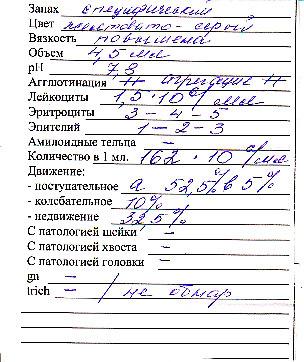 Запах специфический
Цвет желтовато-серый
Вязкость повышена
Объем 4,5 мл
pH 7,8
Агглютинация
Лейкоциты 1,5 · 10⁶/мл
Эритроциты 3 – 4 – 5
Эпителий 1 – 2 – 3
Амилоидные тельца –
Количество в 1 мл. 162 · 10⁶/мл
Движение:
- поступательное а 52,5% в 5%
- колебательное 10%
- недвижение 32,5%
С патологией шейки –
С патологией хвоста –
С патологией головки –
gn –
trich – / не обнар